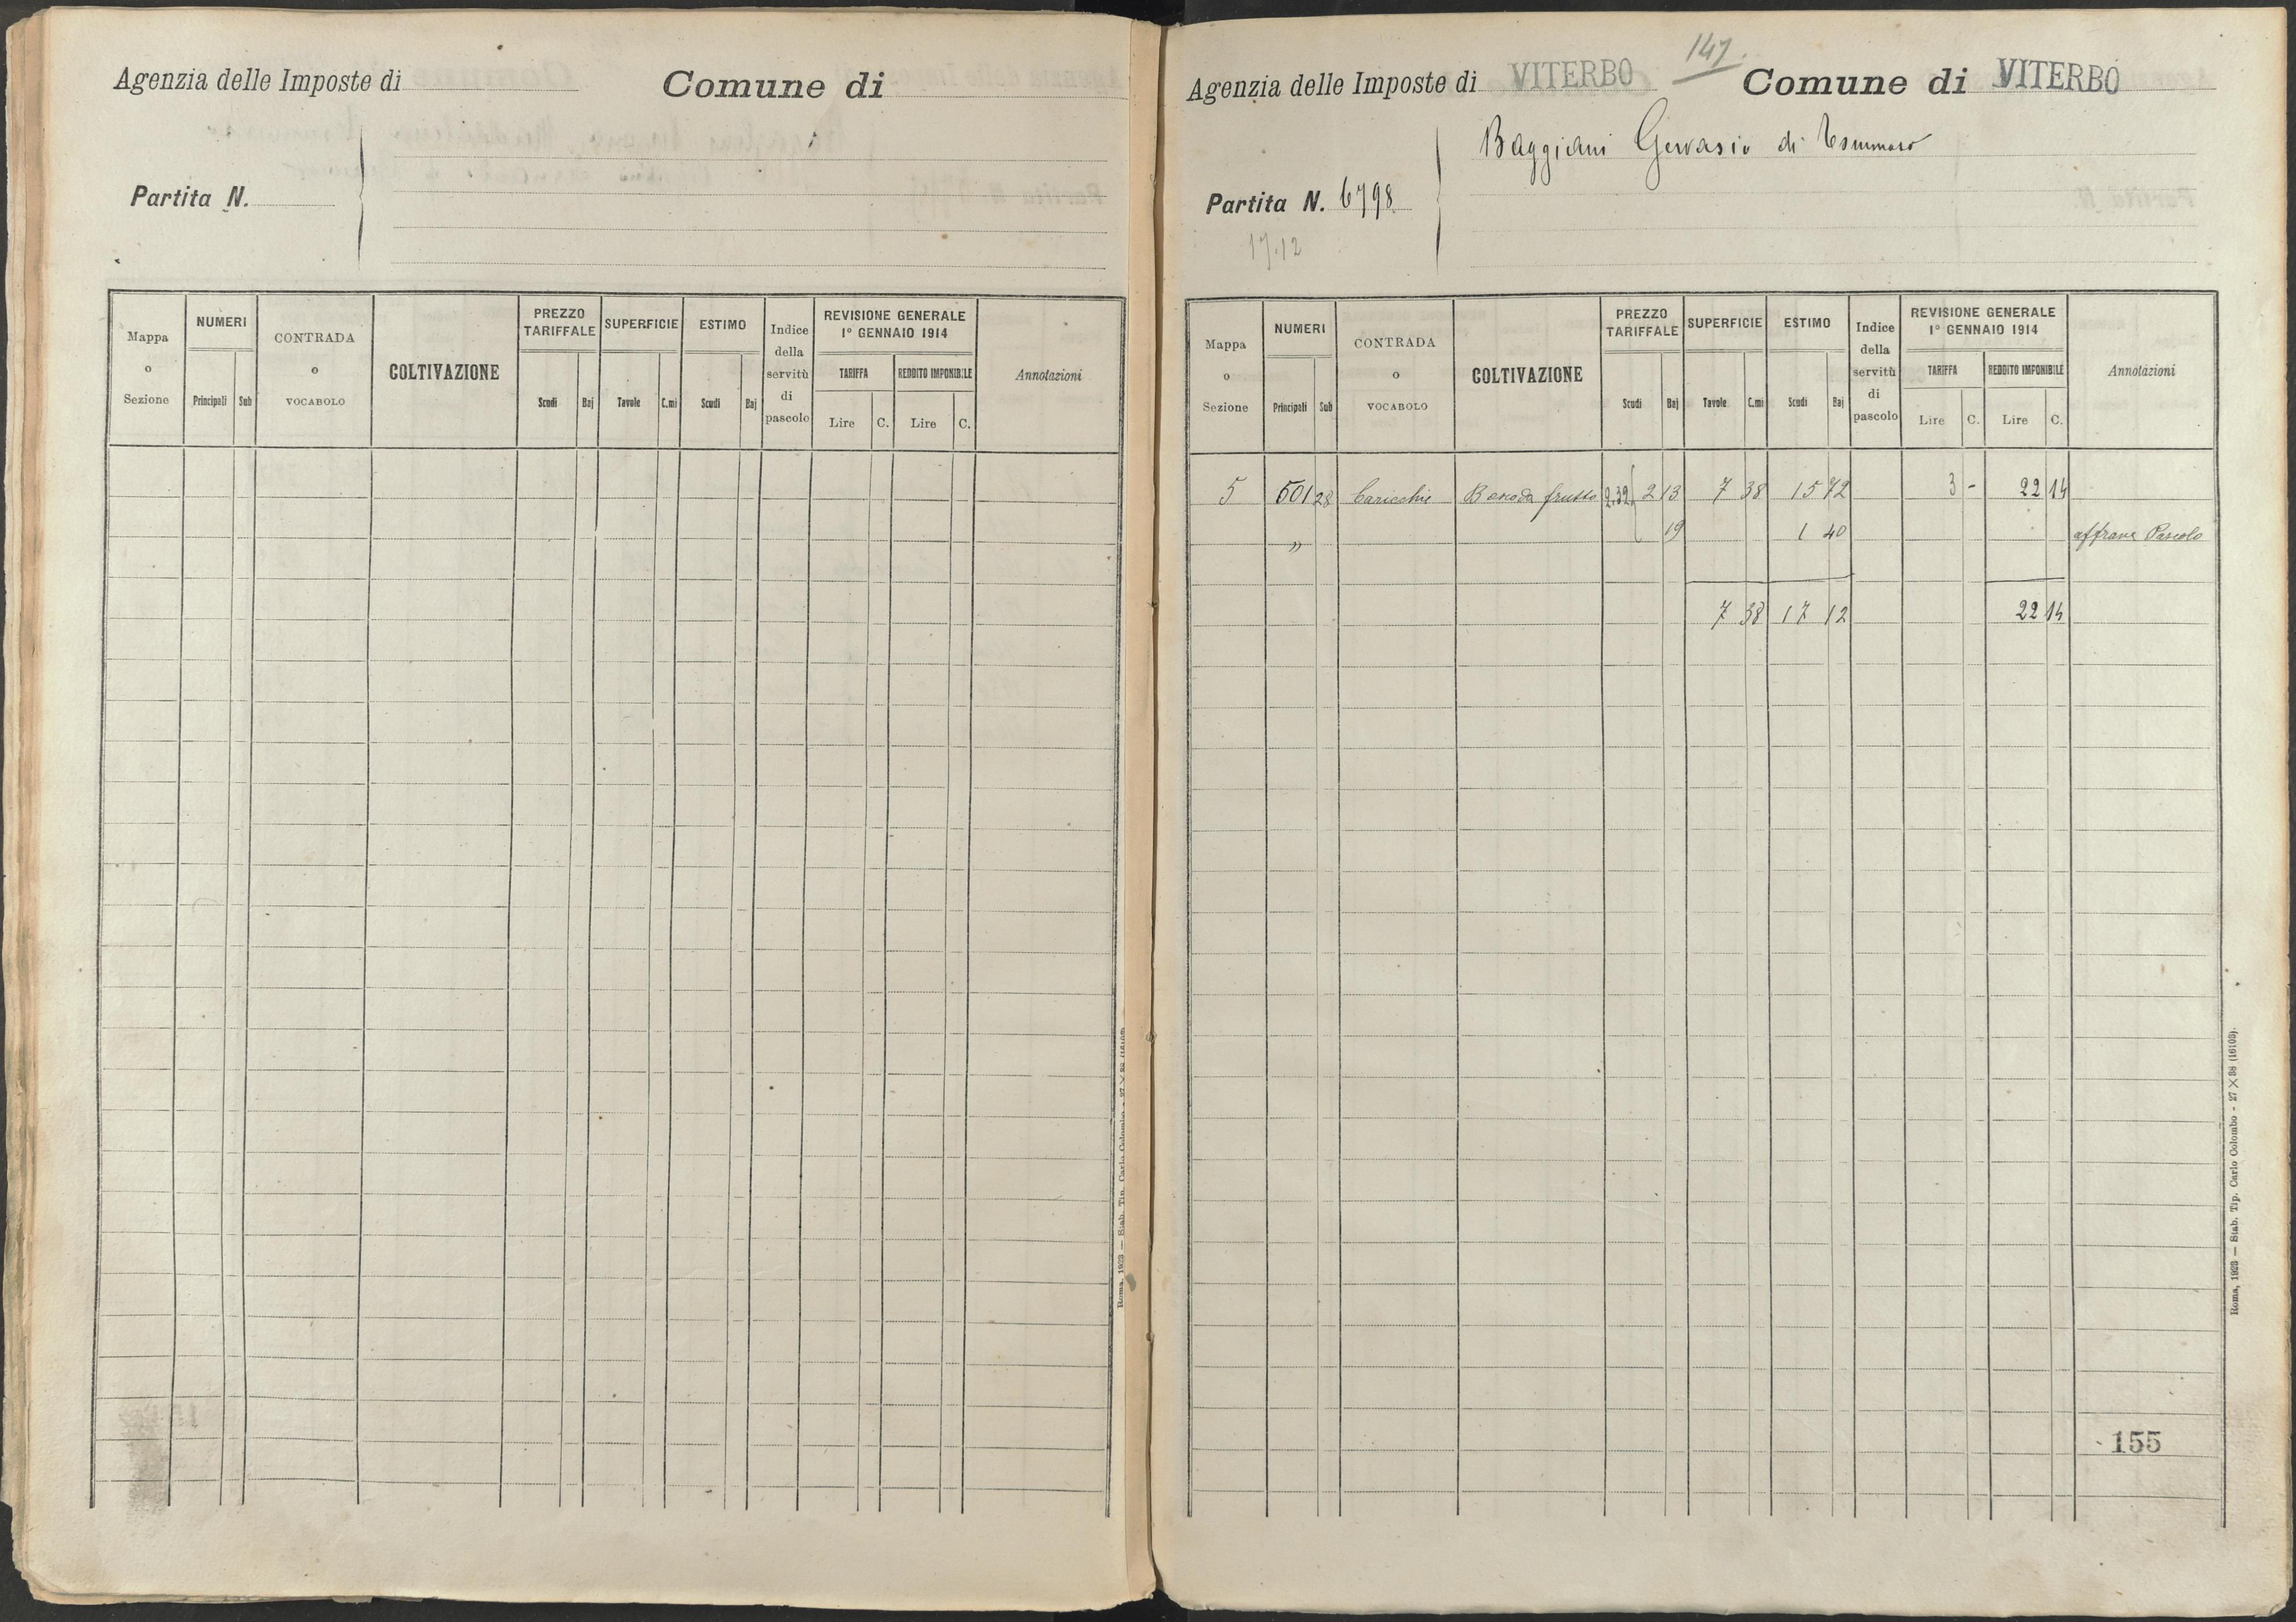 Agenzia delle Imposte di
Comune di
Partita N.
Mappa o Sezione
NUMERI
Principali Sub
CONTRADA o VOCABOLO
COLTIVAZIONE
PREZZO TARIFFALE
Scudi Baj
SUPERFICIE
Tavole C.mi
ESTIMO
Scudi Baj
Indice della servitù di pascolo
REVISIONE GENERALE
1° GENNAIO 1914
TARIFFA
Lire C.
REDDITO IMPONIBILE
Lire C.
Annotazioni
Roma, 1923 — Stab. Tip. Carlo Colombo - 27 × 38 (16103).
147
Agenzia delle Imposte di VITERBO
Comune di VITERBO
Baggiani Gervasio di Tommaso
Partita N. 6798
17.12
Mappa o Sezione
NUMERI
Principali Sub
CONTRADA o VOCABOLO
COLTIVAZIONE
PREZZO TARIFFALE
Scudi Baj
SUPERFICIE
Tavole C.mi
ESTIMO
Scudi Baj
Indice della servitù di pascolo
REVISIONE GENERALE
1° GENNAIO 1914
TARIFFA
Lire C.
REDDITO IMPONIBILE
Lire C.
Annotazioni
5 501 28 Caricchie frutto 2.32 2 13 7 38 15 72 3 - 22 14
" 19 1 40 affranc Pascolo
7 38 17 12 22 14
155
Roma, 1923 — Stab. Tip. Carlo Colombo - 27 × 38 (16103).